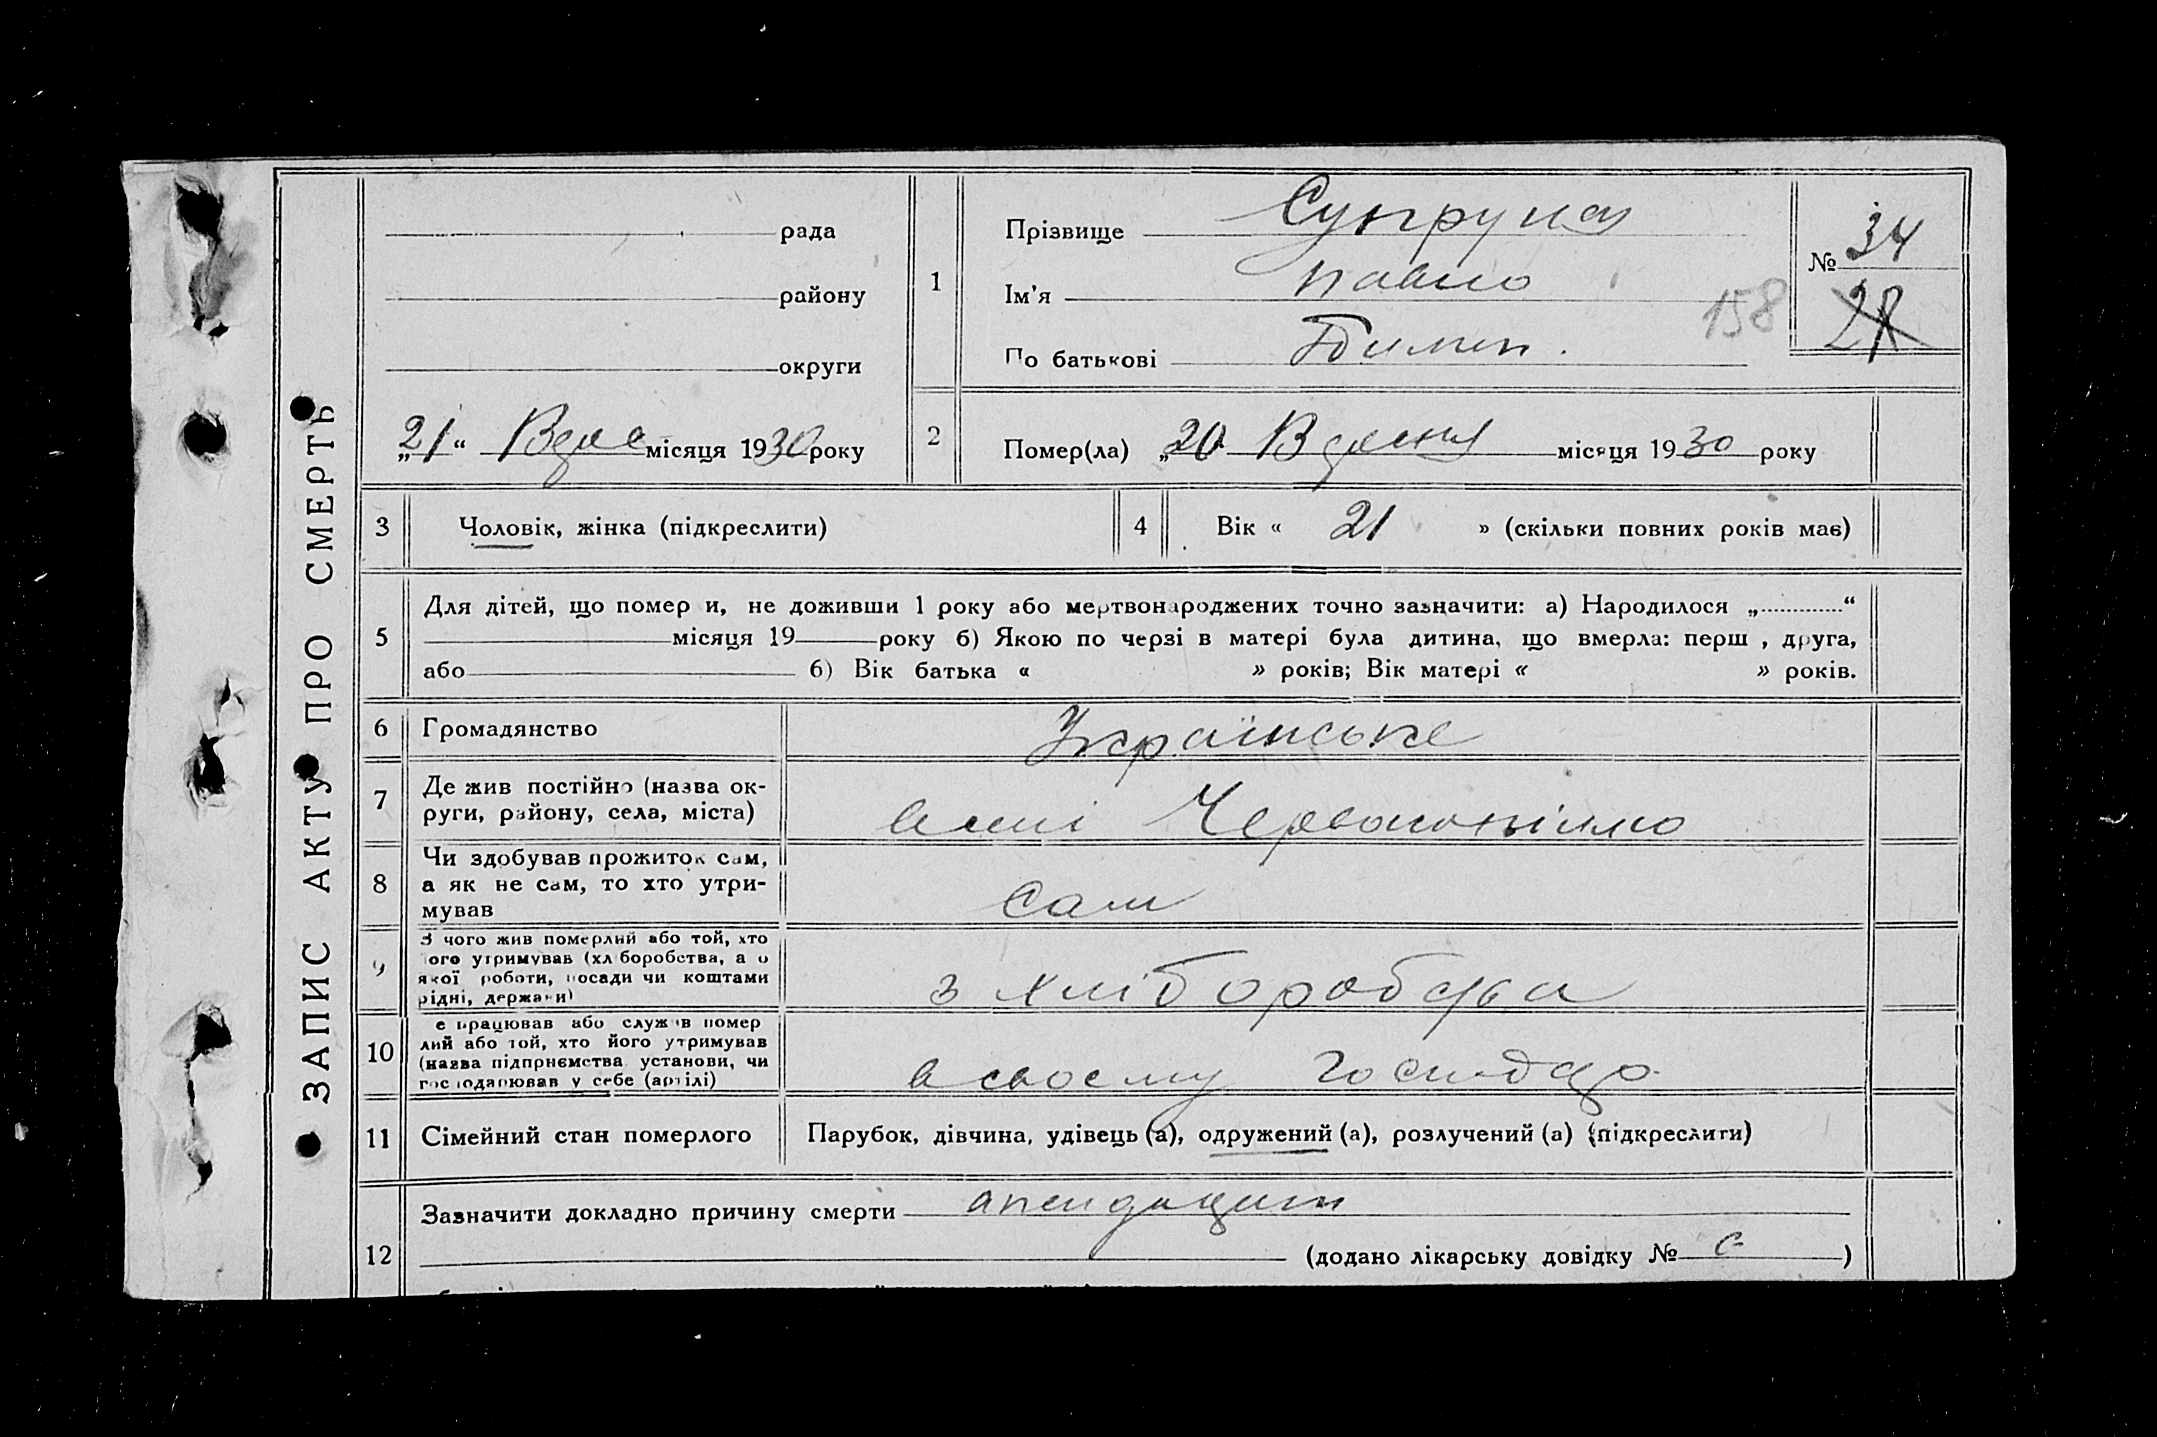 ЗАПИС АКТУ ПРО СМЕРТЬ
рада
району
округи
„21“ Верес місяця 1930 року
1
Прізвище Супрун
Ім'я Павло
По батькові
№ 34
28
158
2
Помер(ла) „20 Вересня місяця 1930 року
3
Чоловік, жінка (підкреслити)
4
Вік « 21 » (скільки повних років має)
5
Для дітей, що помер и, не доживши 1 року або мертвонароджених точно зазначити: а) Народилося „............“
місяця 19 року б) Якою по черзі в матері була дитина, що вмерла: перш , друга,
або б) Вік батька « » років; Вік матері « » років.
6
Громадянство
Українське
7
Де жив постійно (назва ок-
руги, району, села, міста)
8
Чи здобував прожиток сам,
а як не сам, то хто утри-
мував
сам
9
З чого жив померлий або той, хто
ого утримував (хл боробства, а о
якої роботи, посади чи коштами
рідні, держави)
з хліборобства
10
е працював або служив помер
лий або той, хто його утримував
(назва підприємства, установи, чи
господарював у себе (артілі)
в своєму господар
11
Сімейний стан померлого
Парубок, дівчина, удівець (а), одружений (а), розлучений (а) (підкреслити)
12
Зазначити докладно причину смерти апендицит
(додано лікарську довідку № )